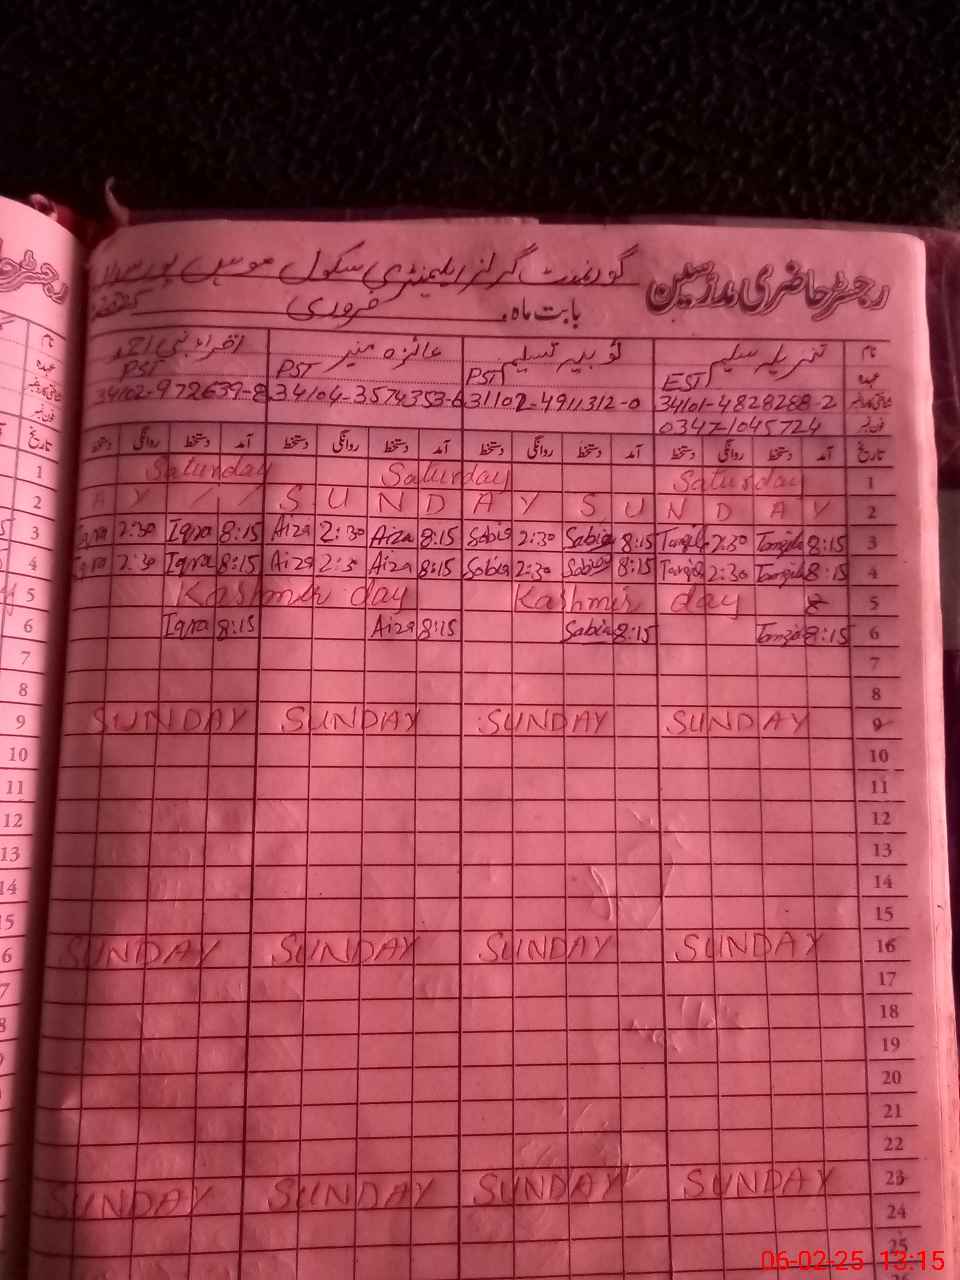 رجسٹر حاضری مدرسین گورنمنٹ گرلز ایلیمنٹری سکول موسی پور
بابت ماہ فروری
نام تنزیلہ سلیم ثوبیہ تسلیم عائزہ منیر اقراء نبی احمد
عہدہ EST PST PST PST
34101-4828288-2 31102-4911312-0 34104-3574353-6 34102-972639-8
0347-1045724
تاریخ آمد دستخط روانگی دستخط آمد دستخط روانگی دستخط آمد دستخط روانگی دستخط آمد دستخط روانگی دستخط
Saturday Saturday Saturday 1
A Y / / S U N D A Y S U N D A Y 2
Iqra 2:30 Iqra 8:15 Aiza 2:30 Aiza 8:15 Sobia 2:30 Sobia 8:15 Tanzila 2:30 Tanzila 8:15 3
Iqra 2:30 Iqra 8:15 Aiza 2:30 Aiza 8:15 Sobia 2:30 Sobia 8:15 Tanzila 2:30 Tanzila 8:15 4
Kashmir day Kashmir day 5
Iqra 8:15 Aiza 8:15 Sobia 8:15 Tanzila 8:15 6
7
8
SUNDAY SUNDAY SUNDAY SUNDAY 9
10
11
12
13
14
15
SUNDAY SUNDAY SUNDAY SUNDAY 16
17
18
19
20
21
22
SUNDAY SUNDAY SUNDAY SUNDAY 23
24
25
06-02-25 13:15